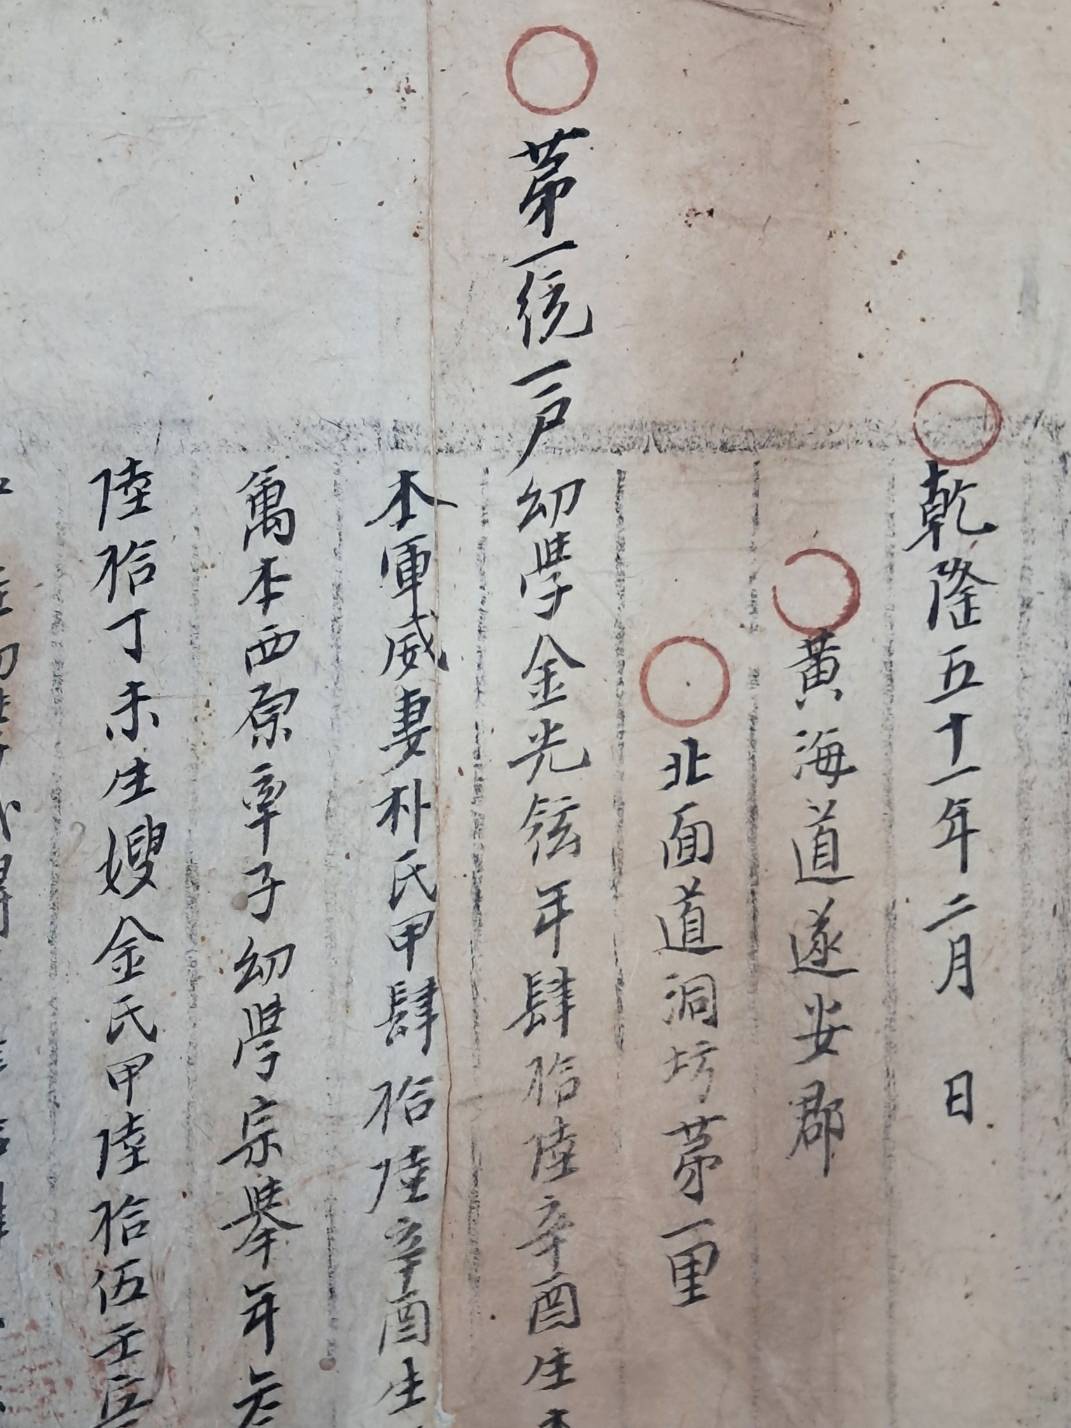 乾隆五十一年二月 日
黃海道遂安郡
北面道洞坊苐一里
苐一統一戶幼學金光鉉年肆拾陸辛酉生本
本軍威妻朴氏甲肆拾陸辛酉生
萬本西原率子幼學宗擧年叁
陸拾丁未生嫂金氏甲陸拾伍壬